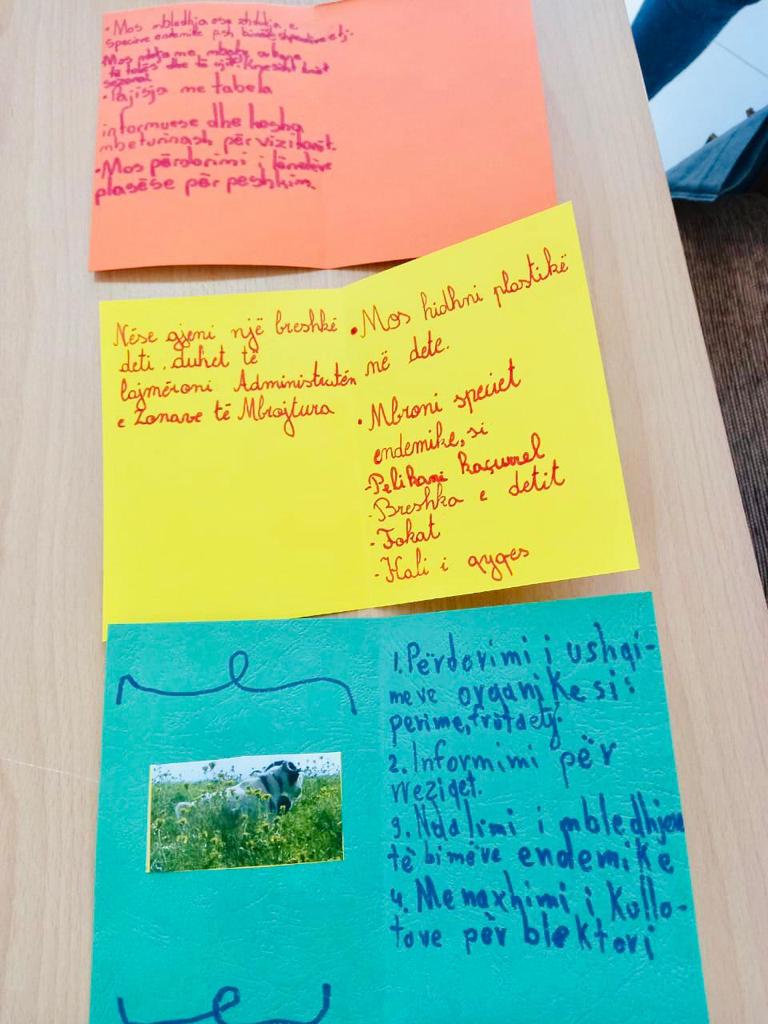 • Mos mbledhja ose zhdukja e
specieve endemike psh bimët, shpendëve etj.
Mos
të dhe të
sezonet
• Pajisja me tabela
informuese dhe kosha
mbeturinash për vizitorët.
• Mos përdorimi i lëndëve
plasëse për peshkim.
Nëse gjeni një breshkë
deti, duhet të
lajmëroni Administratën
e Zonave të Mbrojtura
• Mos hidhni plastikë
në dete.
• Mbroni speciet
endemike, si
-Pelikani kaçurrel
-Breshka e detit
-Fokat
-Kali i gyqes
1. Përdorimi i ushqi-
meve organike si:
perime, frutaetj.
2. Informimi për
rreziqet.
3. Ndalimi i mbledhjes
të bimëve endemike
4. Menaxhimi i Kullo-
tave për blektori